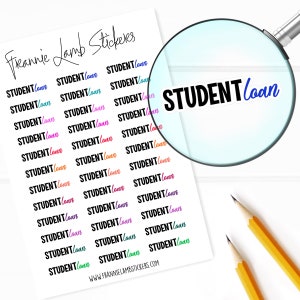 Frannie Lamb Stickers
STUDENT loan STUDENT loan STUDENT loan
STUDENT loan STUDENT loan STUDENT loan
STUDENT loan STUDENT loan STUDENT loan
STUDENT loan STUDENT loan STUDENT loan
STUDENT loan STUDENT loan STUDENT loan
STUDENT loan STUDENT loan STUDENT loan
STUDENT loan STUDENT loan STUDENT loan
STUDENT loan STUDENT loan STUDENT loan
STUDENT loan STUDENT loan STUDENT loan
STUDENT loan STUDENT loan STUDENT loan
STUDENT loan STUDENT loan STUDENT loan
STUDENT loan STUDENT loan STUDENT loan
WWW.FRANNIELAMBSTICKERS.COM
STUDENT loan